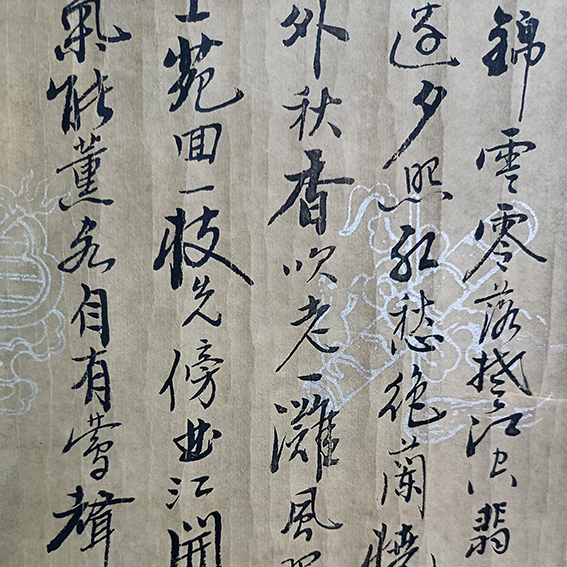 錦雲零落楚江空翡
邊夕照紅愁絕蘭橈
外秋香吹老一灘風
上苑回一枝先傍曲江開
氣能薰客自有鶯聲